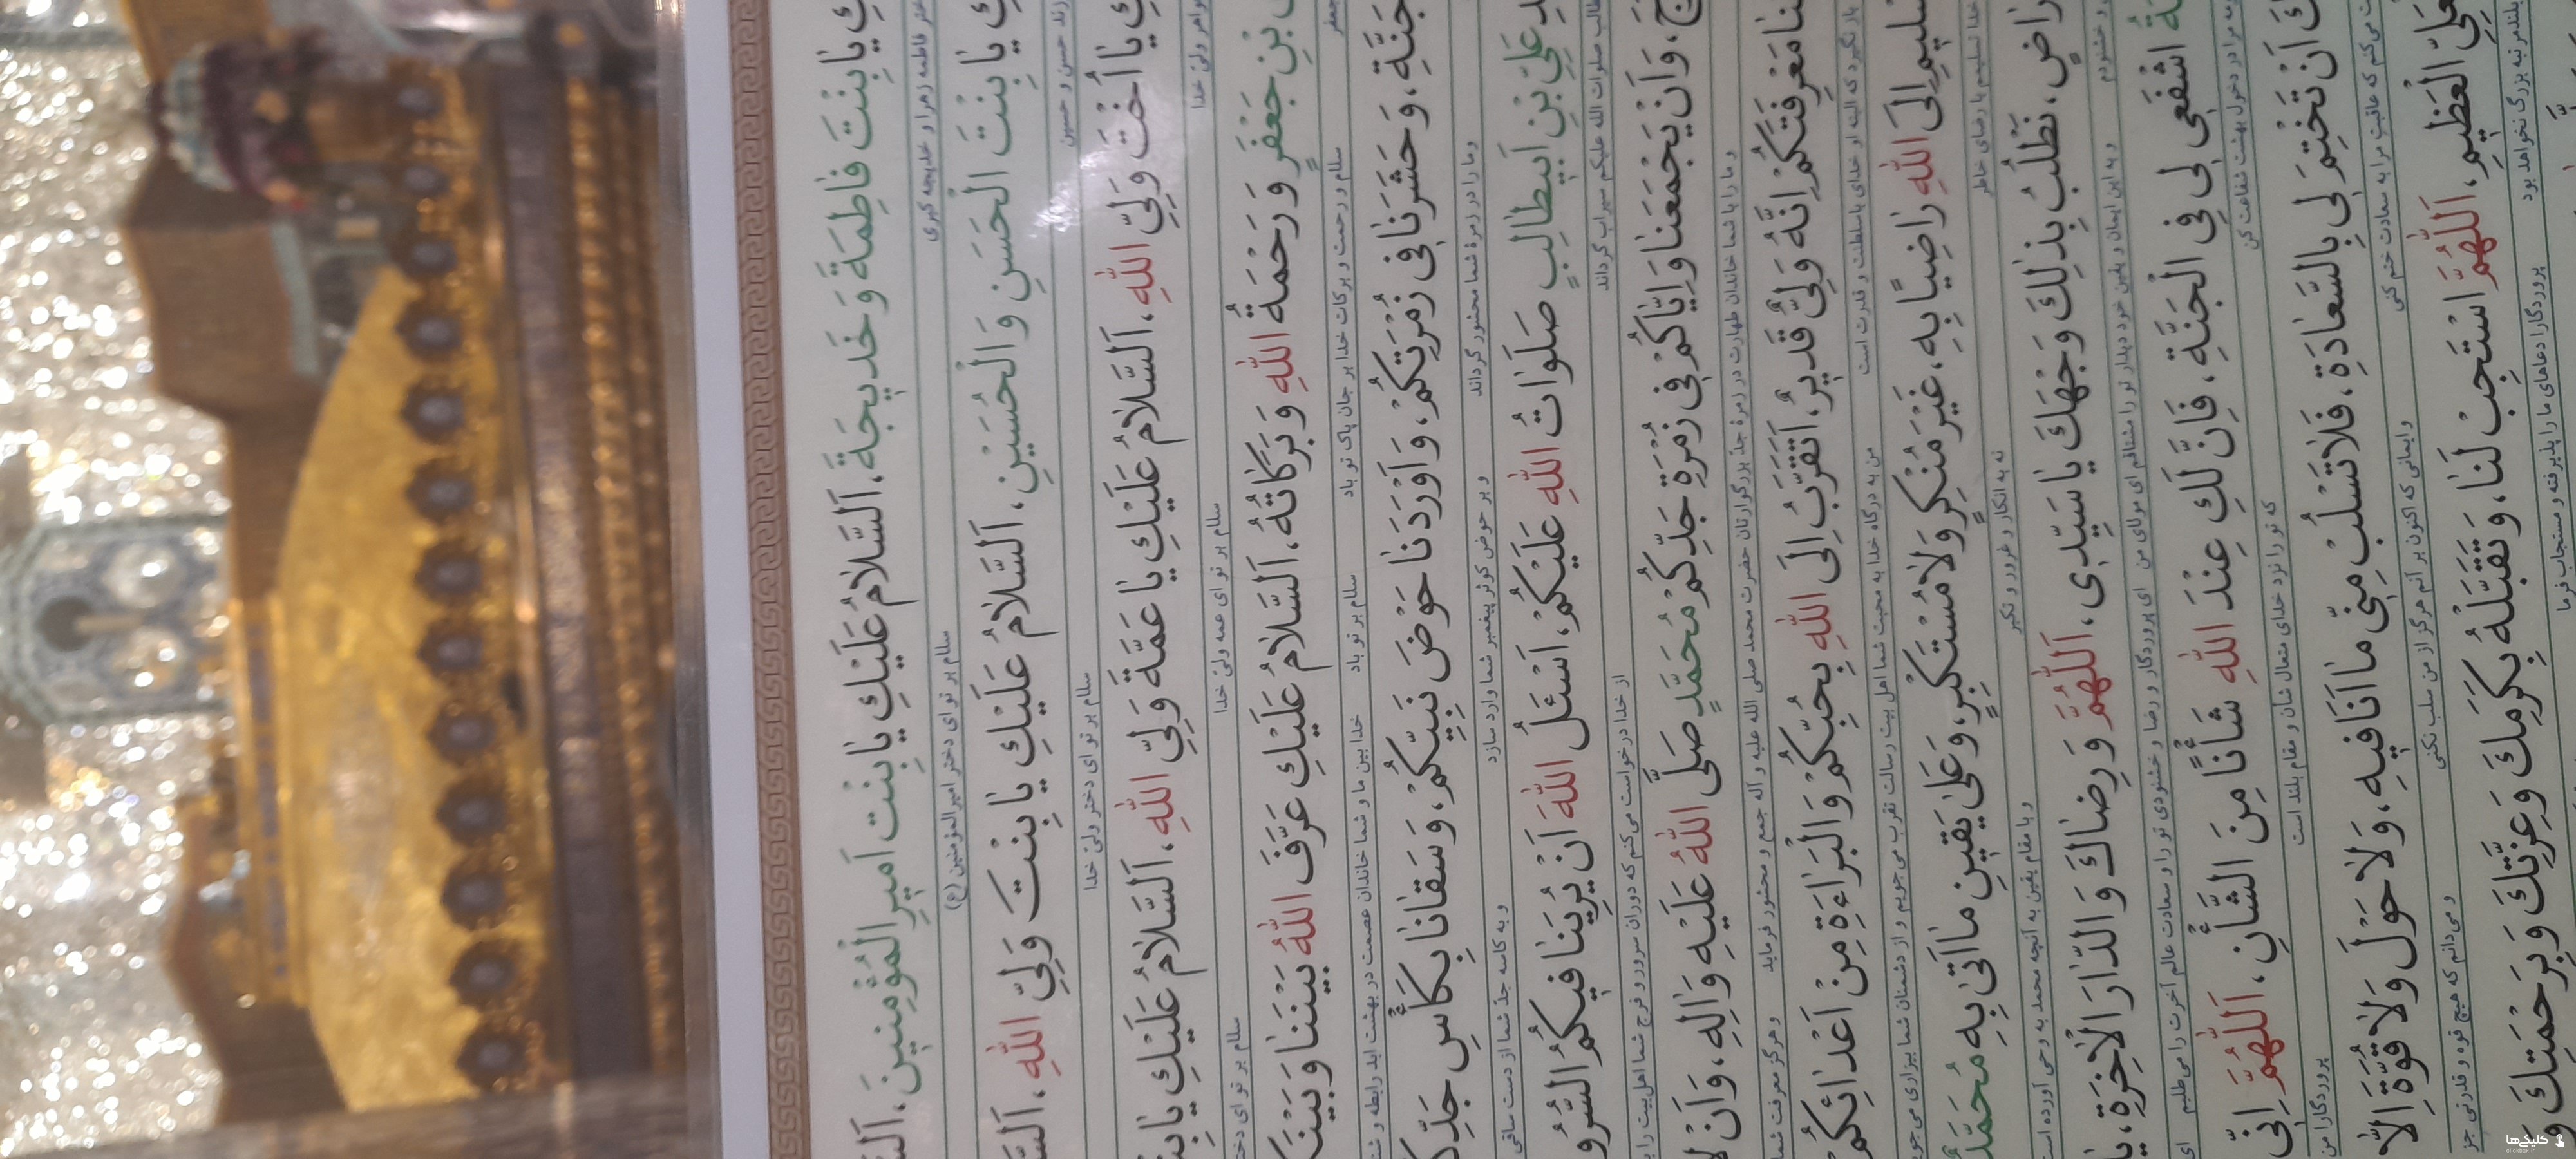 كِ يا بِنْتَ فاطِمَةَ وَ خَديجَةَ، اَلسَّلامُ عَلَيْكِ يا بِنْتَ اَميرِ الْمُؤْمِنينَ، اَلسَّ
ختر فاطمه زهرا و خدیجه کبری سلام بر تو ای دختر امیرالمؤمنین (ع)
كِ يا بِنْتَ الْحَسَنِ وَ الْحُسَيْنِ، اَلسَّلامُ عَلَيْكِ يا بِنْتَ وَلِيِّ اللّهِ، اَلسَّ
زند حسن و حسین سلام بر تو ای دختر ولیّ خدا
كِ يا اُخْتَ وَلِيِّ اللّهِ، اَلسَّلامُ عَلَيْكِ يا عَمَّةَ وَلِيِّ اللّهِ، اَلسَّلامُ عَلَيْكِ يا بِنْ
خواهر ولیّ خدا سلام بر تو ای عمه ولیّ خدا سلام بر تو ای دخت
بْنِ جَعْفَرٍ وَ رَحْمَةُ اللّهِ وَ بَرَكاتُهُ، اَلسَّلامُ عَلَيْكِ عَرَّفَ اللّهُ بَيْنَنا وَ بَيْنَكُ
جعفر سلام و رحمت و برکات خدا بر جان پاک تو باد سلام بر تو باد خدا بین ما و شما خاندان عصمت در بهشت ابد رابطه و شنا
جَنَّةِ، وَ حَشَرَنا فى زُمْرَتِكُمْ، وَ اَوْرَدَنا حَوْضَ نَبِيِّكُمْ، وَ سَقانا بِكَأْسِ جَدِّكُ
و ما را در زمرهٔ شما محشور گرداند و بر حوض کوثر پیغمبر شما وارد سازد و به کاسه جدّ شما از دست ساقی
عَلِيِّ بْنِ اَبيطالِبٍ صَلَواتُ اللّهِ عَلَيْكُمْ، اَسْئَلُ اللّهَ اَنْ يُرِيَنا فيكُمُ السُّرُو
طالب صلوات الله علیکم سیراب گرداند از خدا درخواست می‌کنم که دوران سرور و فرج شما اهل‌بیت را ب
جَ، وَ اَنْ يَجْمَعَنا وَ اِيّاكُمْ فى زُمْرَةِ جَدِّكُمْ مُحَمَّدٍ صَلَّى اللّهُ عَلَيْهِ وَ الِهِ، وَ اَنْ لا
و ما را با شما خاندان طهارت در زمرهٔ جدّ بزرگوارتان حضرت محمد صلی الله علیه و آله جمع و محشور فرماید و هرگز معرفت شما
نا مَعْرِفَتَكُمْ اِنَّهُ وَلِيٌّ قَديرٌ، اَتَقَرَّبُ اِلَى اللّهِ بِحُبِّكُمْ وَ الْبَرائَةِ مِنْ اَعْدائِكُمْ
باز نگیرد که البته او خدای باسلطنت و قدرت است من به درگاه خدا به محبت شما اهل بیت رسالت تقرب می‌جویم و از دشمنان شما بیزاری می‌جوی
سْليمِ اِلَى اللّهِ راضِيًا بِهِ، غَيْرَ مُنْكِرٍ وَ لا مُسْتَكْبِرٍ، وَ عَلى يَقينِ ما اَتى بِهِ مُحَمَّدٌ
خدا تسلیمم با رضای خاطر نه به انکار و غرور و تکبر و با مقام یقین به آنچه محمد به وحی آورده است
راضٍ، نَطْلُبُ بِذلِكَ وَجْهَكَ يا سَيِّدى، اَللّهُمَّ وَ رِضاكَ وَ الدّارَ الْاخِرَةِ، يا
و خشنودم و به این ایمان و یقین خود دیدار تو را مشتاقم ای مولای من ای پروردگار و رضا و خشنودی تو را و سعادت عالم آخرت را می‌طلبم ای
مَةُ اشْفَعى لى فِى الْجَنَّةِ، فَاِنَّ لَكِ عِنْدَ اللّهِ شَأْنًا مِنَ الشَّأْنِ، اَللّهُمَّ اِنّى
مه مرا در دخول بهشت شفاعت کن که تو را نزد خدای متعال شأن و مقام بلند است پروردگارا من
كَ اَنْ تَخْتِمَ لى بِالسَّعادَةِ، فَلا تَسْلُبْ مِنّى ما اَنَا فيهِ، وَ لا حَوْلَ وَ لا قُوَّةَ اِلّا
ت می‌کنم که عاقبت مرا به سعادت ختم کنی و ایمانی که اکنون بر آنم هرگز از من سلب نکنی و می‌دانم که هیچ قوه و قدرتی جز
عَلِيِّ الْعَظيمِ، اَللّهُمَّ اسْتَجِبْ لَنا، وَ تَقَبَّلْهُ بِكَرَمِكَ وَ عِزَّتِكَ وَ بِرَحْمَتِكَ وَ
بلندمرتبه بزرگ نخواهد بود پروردگارا دعاهای ما را پذیرفته و مستجاب فرما
کلیکی‌ها